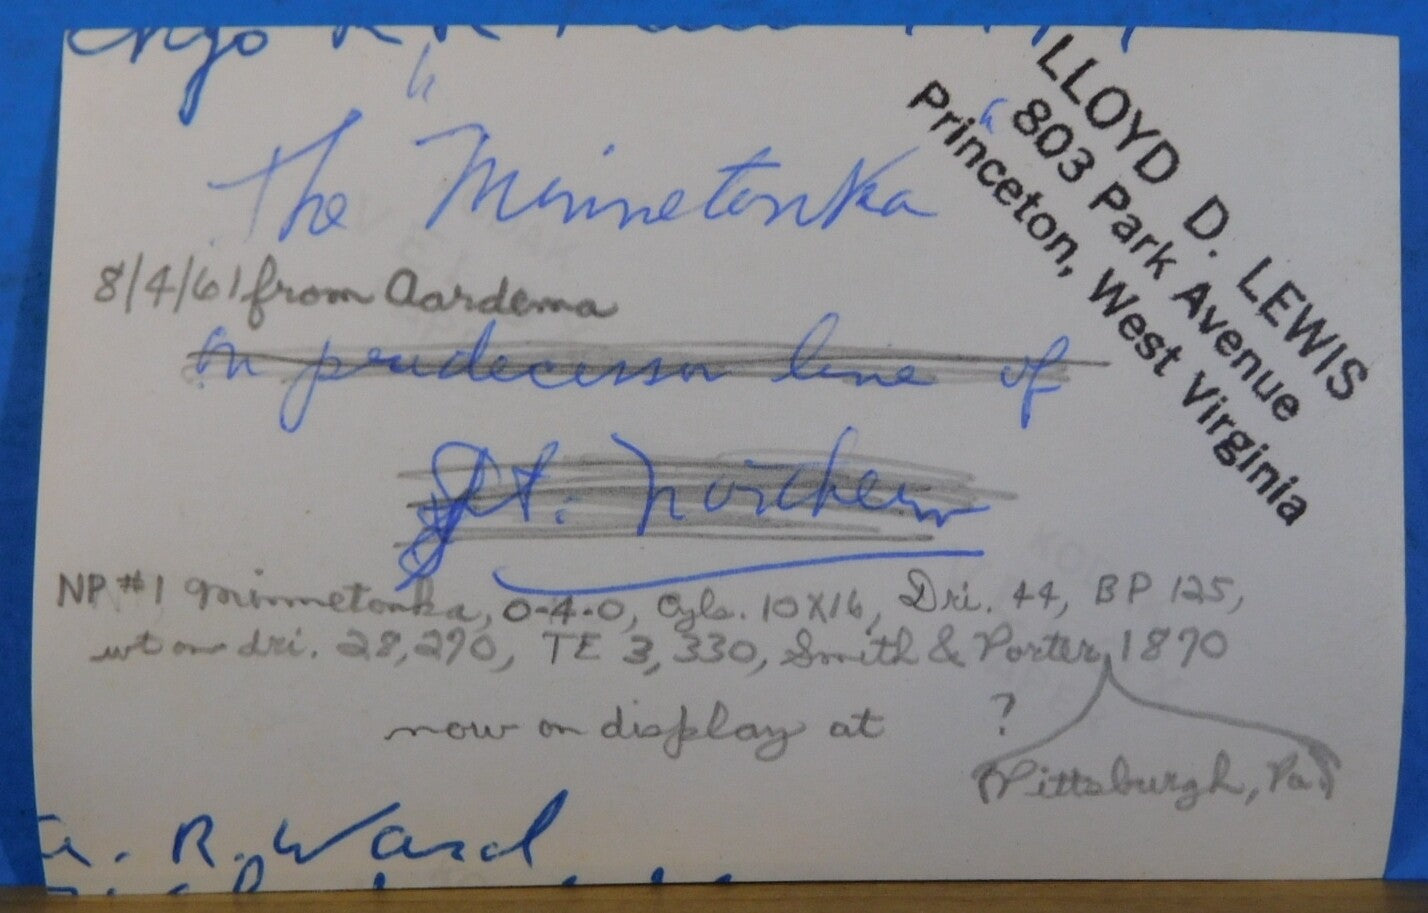 Chgo RR Fair
LLOYD D. LEWIS
803 Park Avenue
Princeton, West Virginia
The "Minnetonka"
8/4/61 from Aardema
on predecessor line of
Gt. Northern
NP #1 Minnetonka, 0-4-0, Cyls. 10X16, Dri. 44, BP 125,
wt on dri. 28,290, TE 3,330, Smith & Porter, 1870
now on display at ?
(Pittsburgh, Pa.)
a. R. Ward